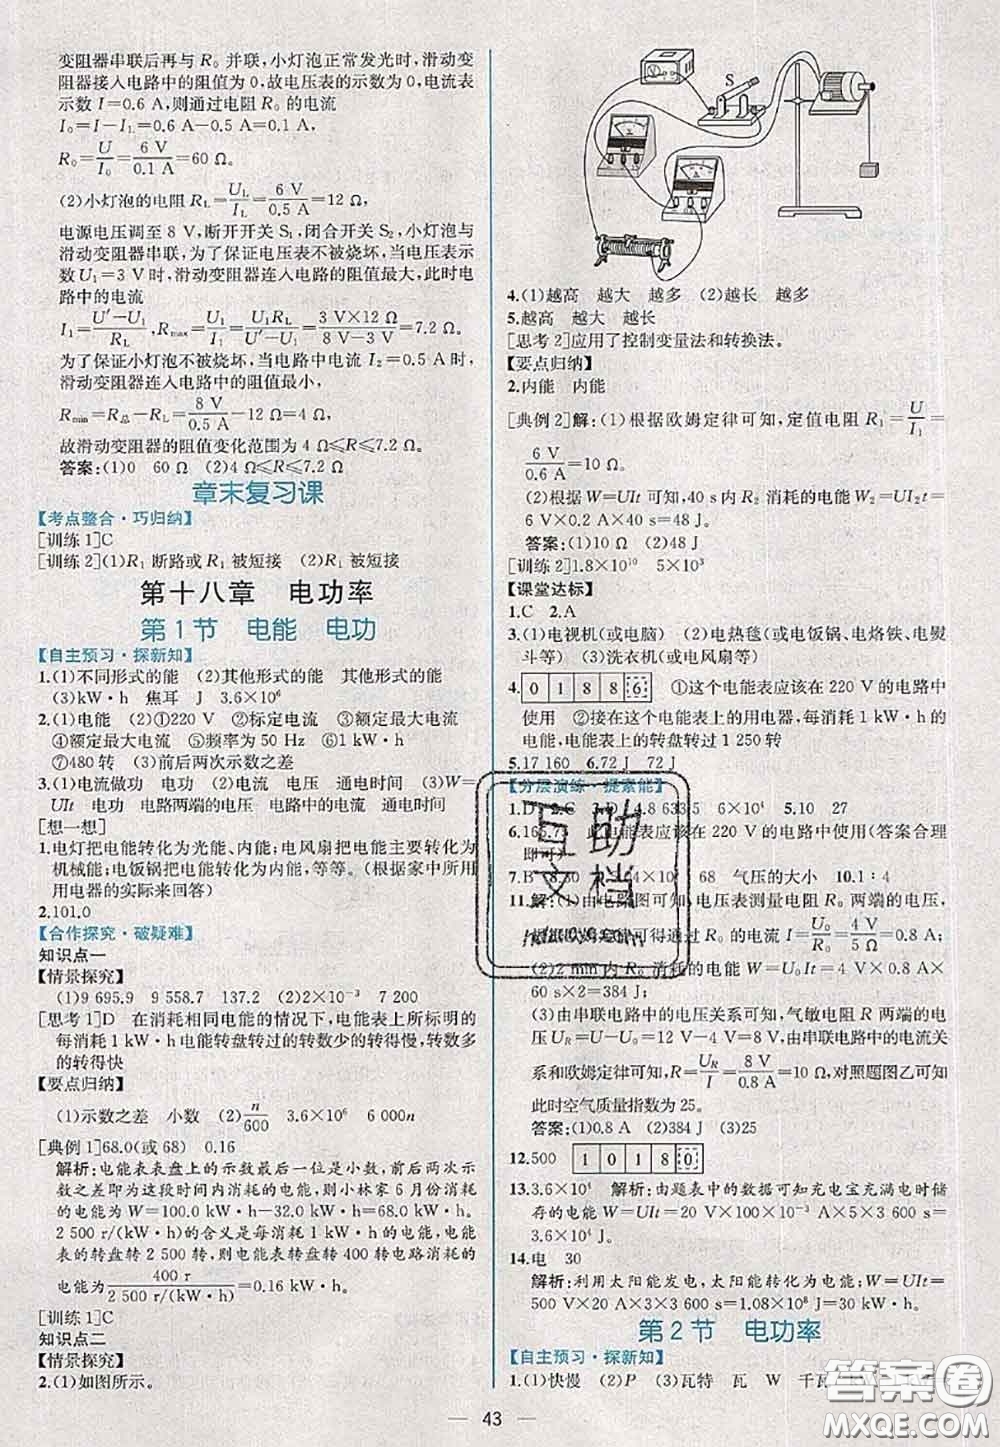 变阻器串联后再与 R₀ 并联,小灯泡正常发光时,滑动变
阻器接入电路中的阻值为 0,故电压表的示数为 0,电流表
示数 I=0.6 A,则通过电阻 R₀ 的电流
I₀=I-I_L=0.6 A-0.5 A=0.1 A,
R₀=U/I₀=6 V/0.1 A=60 Ω。
(2)小灯泡的电阻 R_L=U_L/I_L=6 V/0.5 A=12 Ω,
电源电压调至 8 V,断开开关 S₁,闭合开关 S₂,小灯泡与
滑动变阻器串联,为了保证电压表不被烧坏,当电压表示
数 U₁=3 V 时,滑动变阻器连入电路的阻值最大,此时电
路中的电流
I₁=(U′-U₁)/R_L,R_max=U₁/I₁=U₁R_L/(U′-U₁)=3 V×12 Ω/(8 V-3 V)=7.2 Ω。
为了保证小灯泡不被烧坏,当电路中电流 I₂=0.5 A 时,
滑动变阻器连入电路中的阻值最小,
R_min=R_总-R_L=8 V/0.5 A-12 Ω=4 Ω,
故滑动变阻器的阻值变化范围为 4 Ω≤R≤7.2 Ω。
答案:(1)0 60 Ω (2)4 Ω≤R≤7.2 Ω
章末复习课
【考点整合·巧归纳】
[训练 1]C
[训练 2](1)R₁ 断路或 R₁ 被短接 (2)R₁ 被短接
第十八章 电功率
第 1 节 电能 电功
【自主预习·探新知】
1.(1)不同形式的能 (2)其他形式的能 其他形式的能
(3)kW·h 焦耳 J 3.6×10⁶
2.(1)电能 (2)①220 V ②标定电流 ③额定最大电流
④额定最大电流 ⑤频率为 50 Hz ⑥1 kW·h
⑦480 转 (3)前后两次示数之差
3.(1)电流做功 电功 (2)电流 电压 通电时间 (3)W=
UIt 电功 电路两端的电压 电路中的电流 通电时间
[想一想]
1.电灯把电能转化为光能、内能;电风扇把电能主要转化为
机械能;电饭锅把电能转化为内能,等等。(根据家中所用
用电器的实际来回答)
2.101.0
【合作探究·破疑难】
知识点一
【情景探究】
(1)9 695.9 9 558.7 137.2 (2)2×10⁻³ 7 200
[思考 1]D 在消耗相同电能的情况下,电能表上所标明的
每消耗 1 kW·h 电能转盘转过的转数少的转得慢,转数多
的转得快
【要点归纳】
(1)示数之差 小数 (2)n/600 3.6×10⁶ 6 000n
[典例 1]68.0(或 68) 0.16
解析:电能表表盘上的示数最后一位是小数,前后两次
示数之差即为这段时间内消耗的电能,则小林家 6 月份消
耗的电能为 W=100.0 kW·h-32.0 kW·h=68.0 kW·h。
2 500 r/(kW·h)的含义是每消耗 1 kW·h 的电能,电能
表的转盘转 2 500 转,则电能表转盘转 400 转电路消耗的
电能为400 r/2 500 r/(kW·h)=0.16 kW·h。
[训练 1]C
知识点二
【情景探究】
2.(1)如图所示。
S
4.(1)越高 越大 越多 (2)越长 越多
5.越高 越大 越长
[思考 2]应用了控制变量法和转换法。
【要点归纳】
2.内能 内能
[典例 2]解:(1)根据欧姆定律可知,定值电阻 R₁=U/I₁=
6 V/0.6 A=10 Ω。
(2)根据 W=UIt 可知,40 s内 R₂ 消耗的电能 W₂=UI₂t=
6 V×0.2 A×40 s=48 J。
答案:(1)10 Ω (2)48 J
[训练 2]1.8×10¹⁰ 5×10³
【课堂达标】
1.C 2.A
3.(1)电视机(或电脑) (2)电热毯(或电饭锅、电烙铁、电熨
斗等) (3)洗衣机(或电风扇等)
4. 0 1 8 8 6 ①这个电能表应该在 220 V 的电路中
使用 ②接在这个电能表上的用电器,每消耗 1 kW·h 的
电能,电能表上的转盘转过 1 250 转
5.17 160 6.72 J 72 J
【分层演练·提素能】
1.D 2.C 3.D 4.8 633.5 6×10⁴ 5.10 27
6.165.7 此电能表应该在 220 V 的电路中使用(答案合理
即可)
7.B 8.80 68 气压的大小 10.1∶4
11.解:(1)由电路图可知,电压表测量电阻 R₀ 两端的电压,
根据欧姆定律可得通过 R₀ 的电流 I=U₀/R₀=4 V/5 Ω=0.8 A;
(2)2 min 内 R₀ 消耗的电能 W=U₀It=4 V×0.8 A×
60 s×2=384 J;
(3)由串联电路中的电压关系可知,气敏电阻 R 两端的电
压 U_R=U-U₀=12 V-4 V=8 V,由串联电路中的电流关
系和欧姆定律可知,R=U_R/I=8 V/0.8 A=10 Ω,对照题图乙可知
此时空气质量指数为 25。
答案:(1)0.8 A (2)384 J (3)25
12.500 1 0 1 8 0
13.3.6×10⁴ 解析:由题表中的数据可知充电宝充满电时储
存的电能 W=UIt=20 V×1000×10⁻³ A×5×3 600 s=
3.6×10⁴ J。
14.电 30
解析:利用太阳能发电,太阳能转化为电能;W=UIt=
500 V×20 A×3×3 600 s=1.08×10⁸ J=30 kW·h。
第 2 节 电功率
【自主预习·探新知】
1.(1)快慢 (2)P (3)瓦特 瓦 W 千瓦
43
互助
文档
答案圈
MXQE.COM